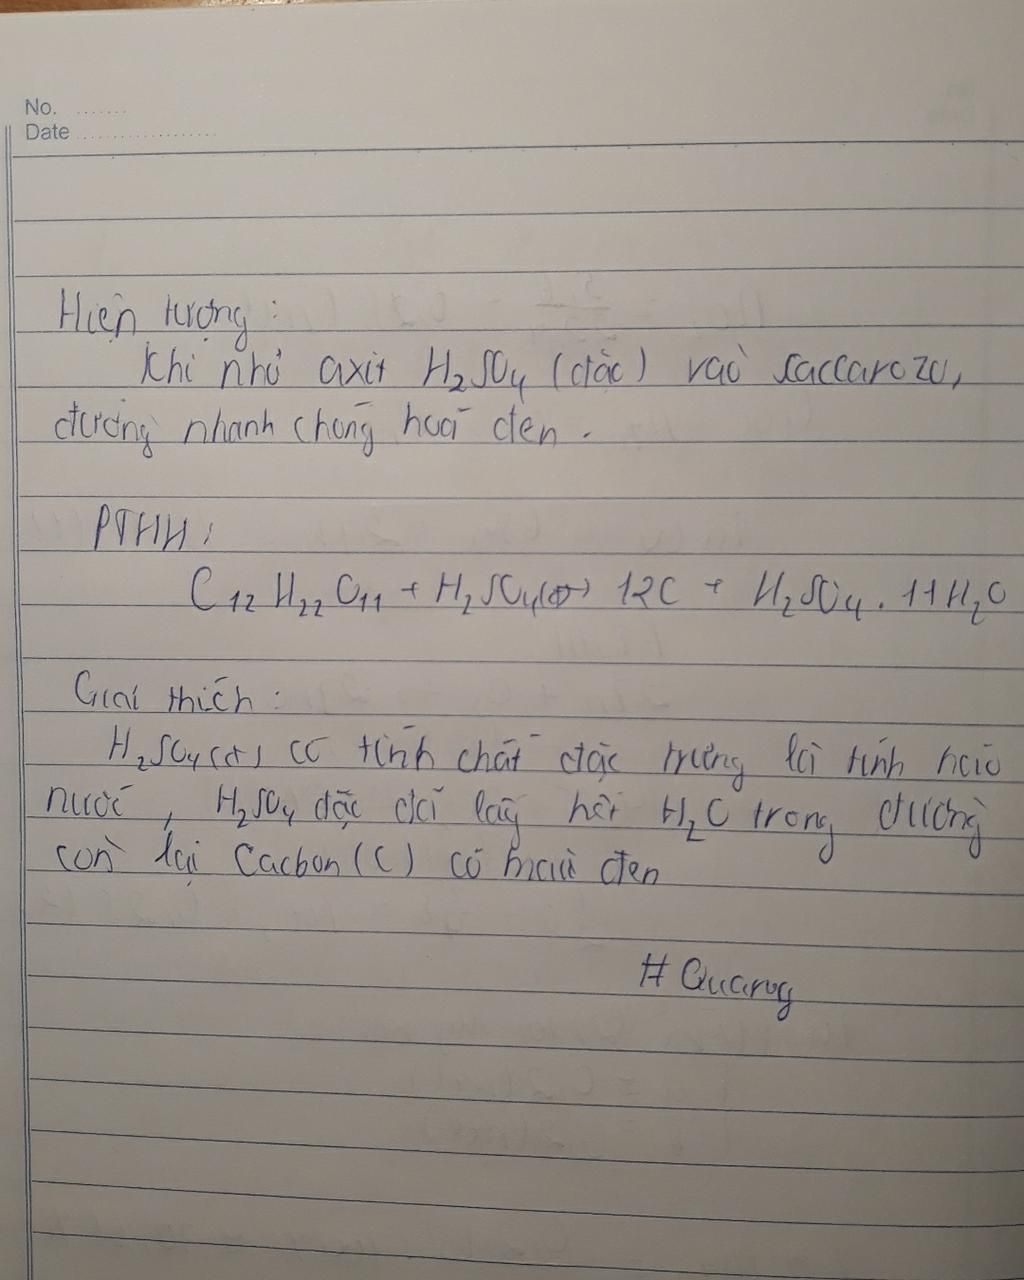 No. .......
Date ..................
Hiện tượng:
Khi nhỏ axit H₂SO₄ (đặc) vào saccarozo,
đường nhanh chóng hoá đen.
PTHH:
C₁₂H₂₂O₁₁ + H₂SO₄(đ) → 12C + H₂SO₄.11H₂O
Giải thích:
H₂SO₄(đ) có tính chất đặc trưng là tính háo
nước, H₂SO₄ đặc đã lấy hết H₂O trong đường
còn lại Cacbon (C) có màu đen
# Quang